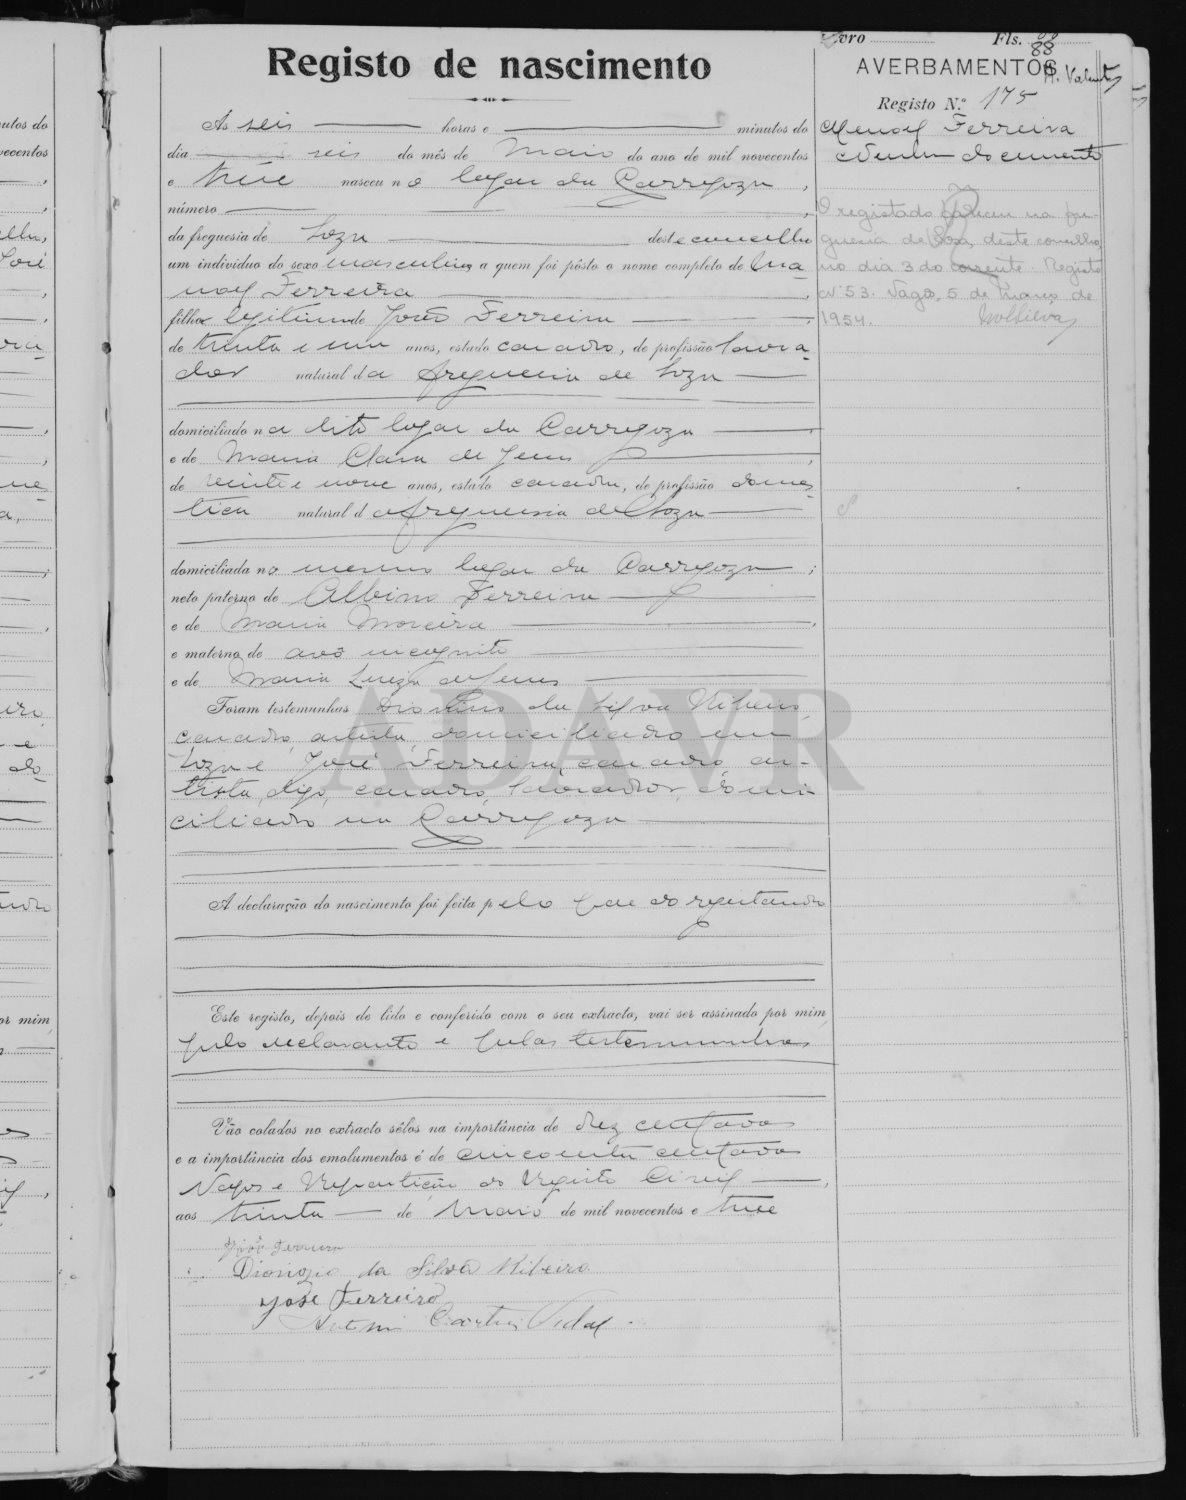 Registo de nascimento
Livro Fls. 88
88
AVERBAMENTOS
Registo N.º 175
Manoel Ferreira
Nenhum documento
O registado faleceu na fre-
guesia de Soza, deste concelho,
no dia 3 do corrente. Registo
N.º 53. Vagos, 5 de Março de
1954.
Às seis horas e minutos do
dia seis do mês de Maio do ano de mil novecentos
e treze nasceu no logar da Carregoza,
número
da freguesia de Soza deste concelho
um individuo do sexo masculino a quem foi pôsto o nome completo de Ma-
noel Ferreira
filho legitimo de João Ferreira
de trinta e um anos, estado casado, de profissão lavra-
dor natural da freguesia de Soza
domiciliado no dito logar da Carregoza
e de Maria Clara de Jesus
de vinte e nove anos, estado casada, de profissão domes-
tica natural da freguesia de Soza
domiciliada no mesmo logar da Carregoza;
neto paterno de Albino Ferreira
e de Maria Moreira,
e materno de avô incognito
e de Maria Luiza de Jesus
Foram testemunhas Dionizio da Silva Ribeiro,
casado, artista, domiciliado em
Soza e José Ferreira, casado, ar-
tista, digo, casado, lavrador, domi-
ciliado na Carregoza
A declaração do nascimento foi feita pelo pae do registando
Este registo, depois de lido e conferido com o seu extracto, vai ser assinado por mim,
pelo declarante e pelas testemunhas
Vão colados no extracto sêlos na importância de dez centavos
e a importância dos emolumentos é de cincoenta centavos
Vagos e Repartição do Registo Civil,
aos trinta de Maio de mil novecentos e treze
João Ferreira
Dionizio da Silva Ribeiro
José Ferreira
Antonio Vidal
ADAVR